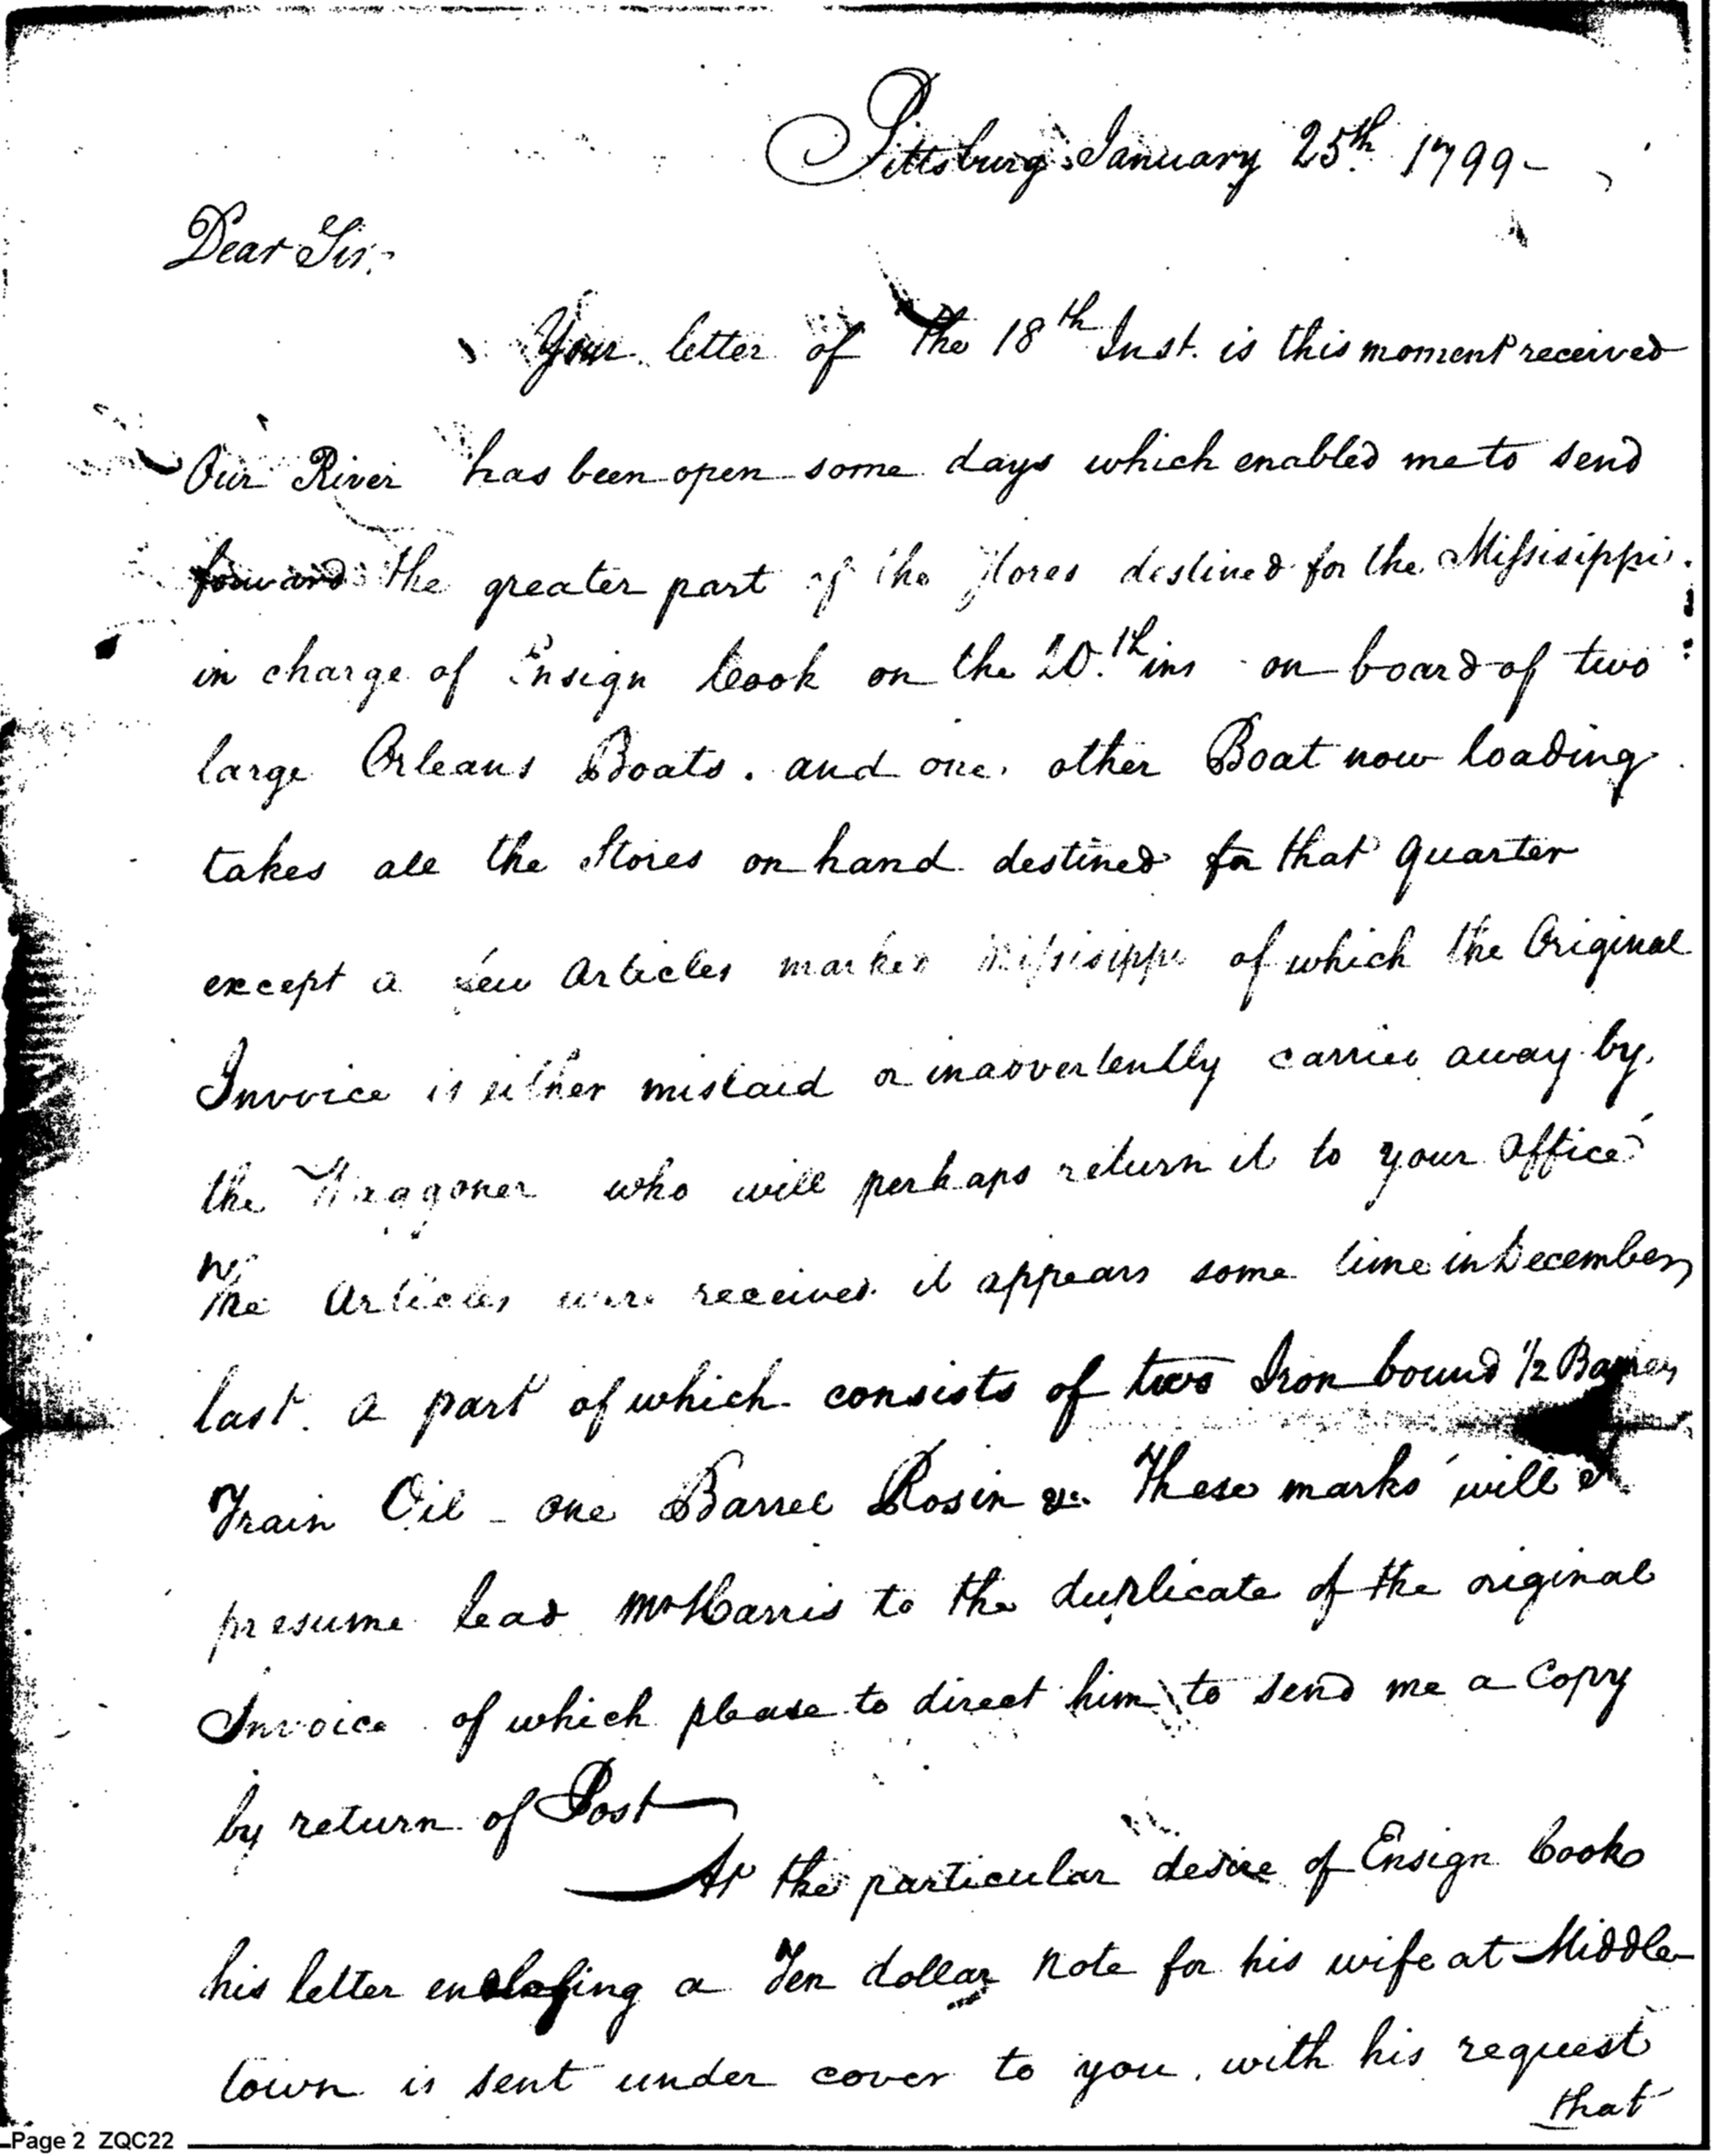 Pittsburg January 25th 1799-
Dear Sir.
Your letter of the 18th Inst. is this moment received
Our River has been open some days which enabled me to send
forward the greater part of the stores destined for the Missisippi.
in charge of Ensign Cook on the 20.th ins on board of two
large Orleans Boats. and one other Boat now loading
takes all the Stores on hand destined for that Quarter
except a few Articles marked Missisippi of which the Original
Invoice is either mislaid or inadvertently carried away by
the Waggoner who will perhaps return it to your Office
The Articles were received it appears some time in December
last. a part of which consists of two Iron bound 1/2 Barrels
Train Oil - one Barrel Rosin &c. These marks will I
presume lead Mr Harris to the duplicate of the original
Invoice of which please to direct him to send me a Copy
by return of Post
At the particular desire of Ensign Cook
his letter enclosing a Ten dollar Note for his wife at Middle
town is sent under cover to you. with his request
that
Page 2 ZQC22